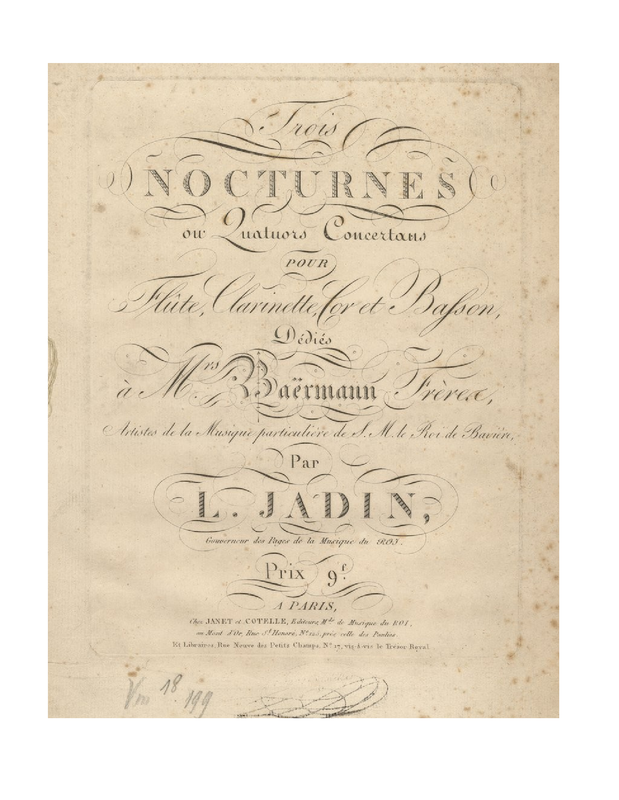 Trois
NOCTURNES
ou Quatuors Concertans
POUR
Flûte, Clarinette, Cor et Basson,
Dédiés
à M.rs Baërmann Frères,
Artistes de la Musique particulière de S. M. le Roi de Bavière,
Par
L. JADIN,
Gouverneur des Pages de la Musique du ROI.
Prix 9f.
A PARIS,
Chez JANET et COTELLE, Editeurs, M.ds de Musique du ROI,
au Mont d'Or, Rue S.t Honoré, N.o près celle des Poulies.
Et Libraires, Rue Neuve des Petits Champs, N.o 17, vis-à-vis le Trésor Royal
Vm 18. 199